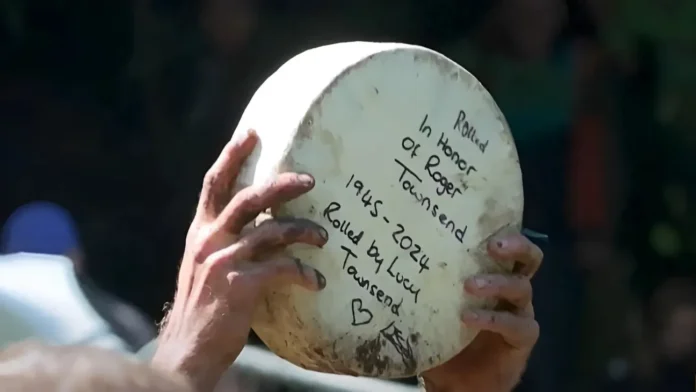 Rolled
In Honor
Of Roger
Townsend
1945-2024
Rolled by Lucy
Townsend